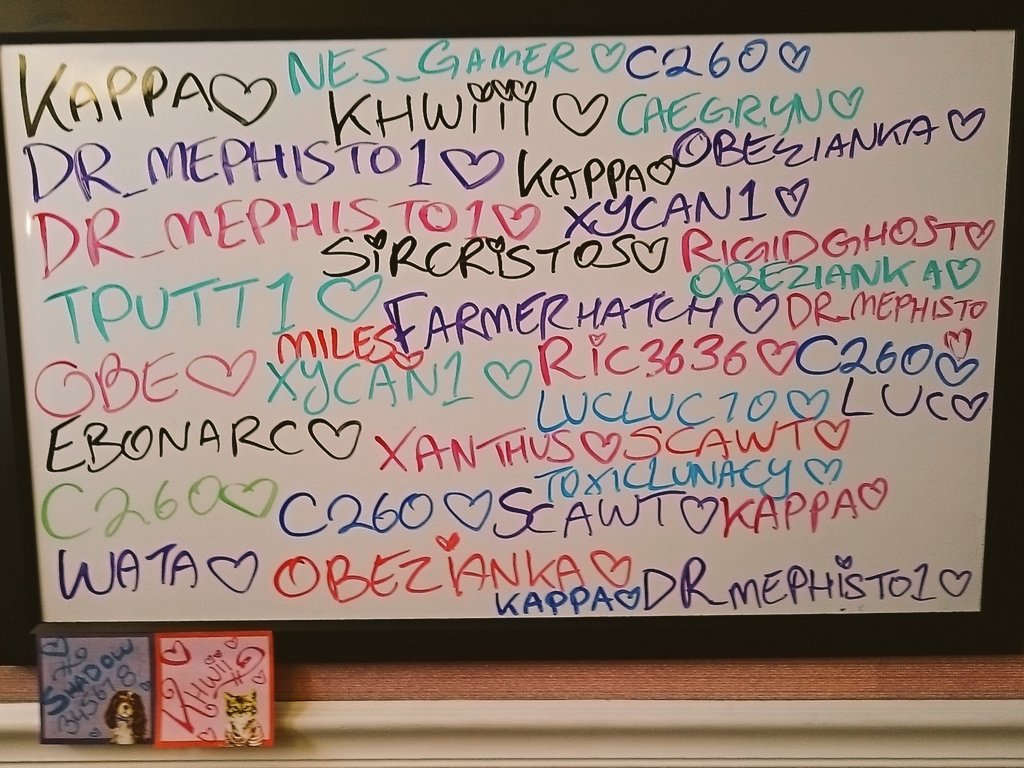 KAPPA♡ NES_GAMER♡ C260♡
KHWiii♡ CAEGRYN♡
DR_MEPHISTO1♡ KAPPA♡ OBEZIANKA♡
DR_MEPHISTO1♡ XYCAN1♡
SiRCRiSTOS♡ RIGIDGHOST♡
TPUTT1♡ OBEZIANKA♡
FARMERHATCH♡ DR_MEPHISTO
MILES♡
OBE♡ XYCAN1♡ RiC3636♡ C260♡
LUCLUC70♡ LUC♡
EBONARC♡ XANTHUS♡ SCAWT♡
TOXICLUNACY♡
C260♡ C260♡ SCAWT♡ KAPPA♡
WATA♡ OBEZiANKA♡
KAPPA♡ DRMEPHiSTO1♡
SHADOW
345678
KHWiii